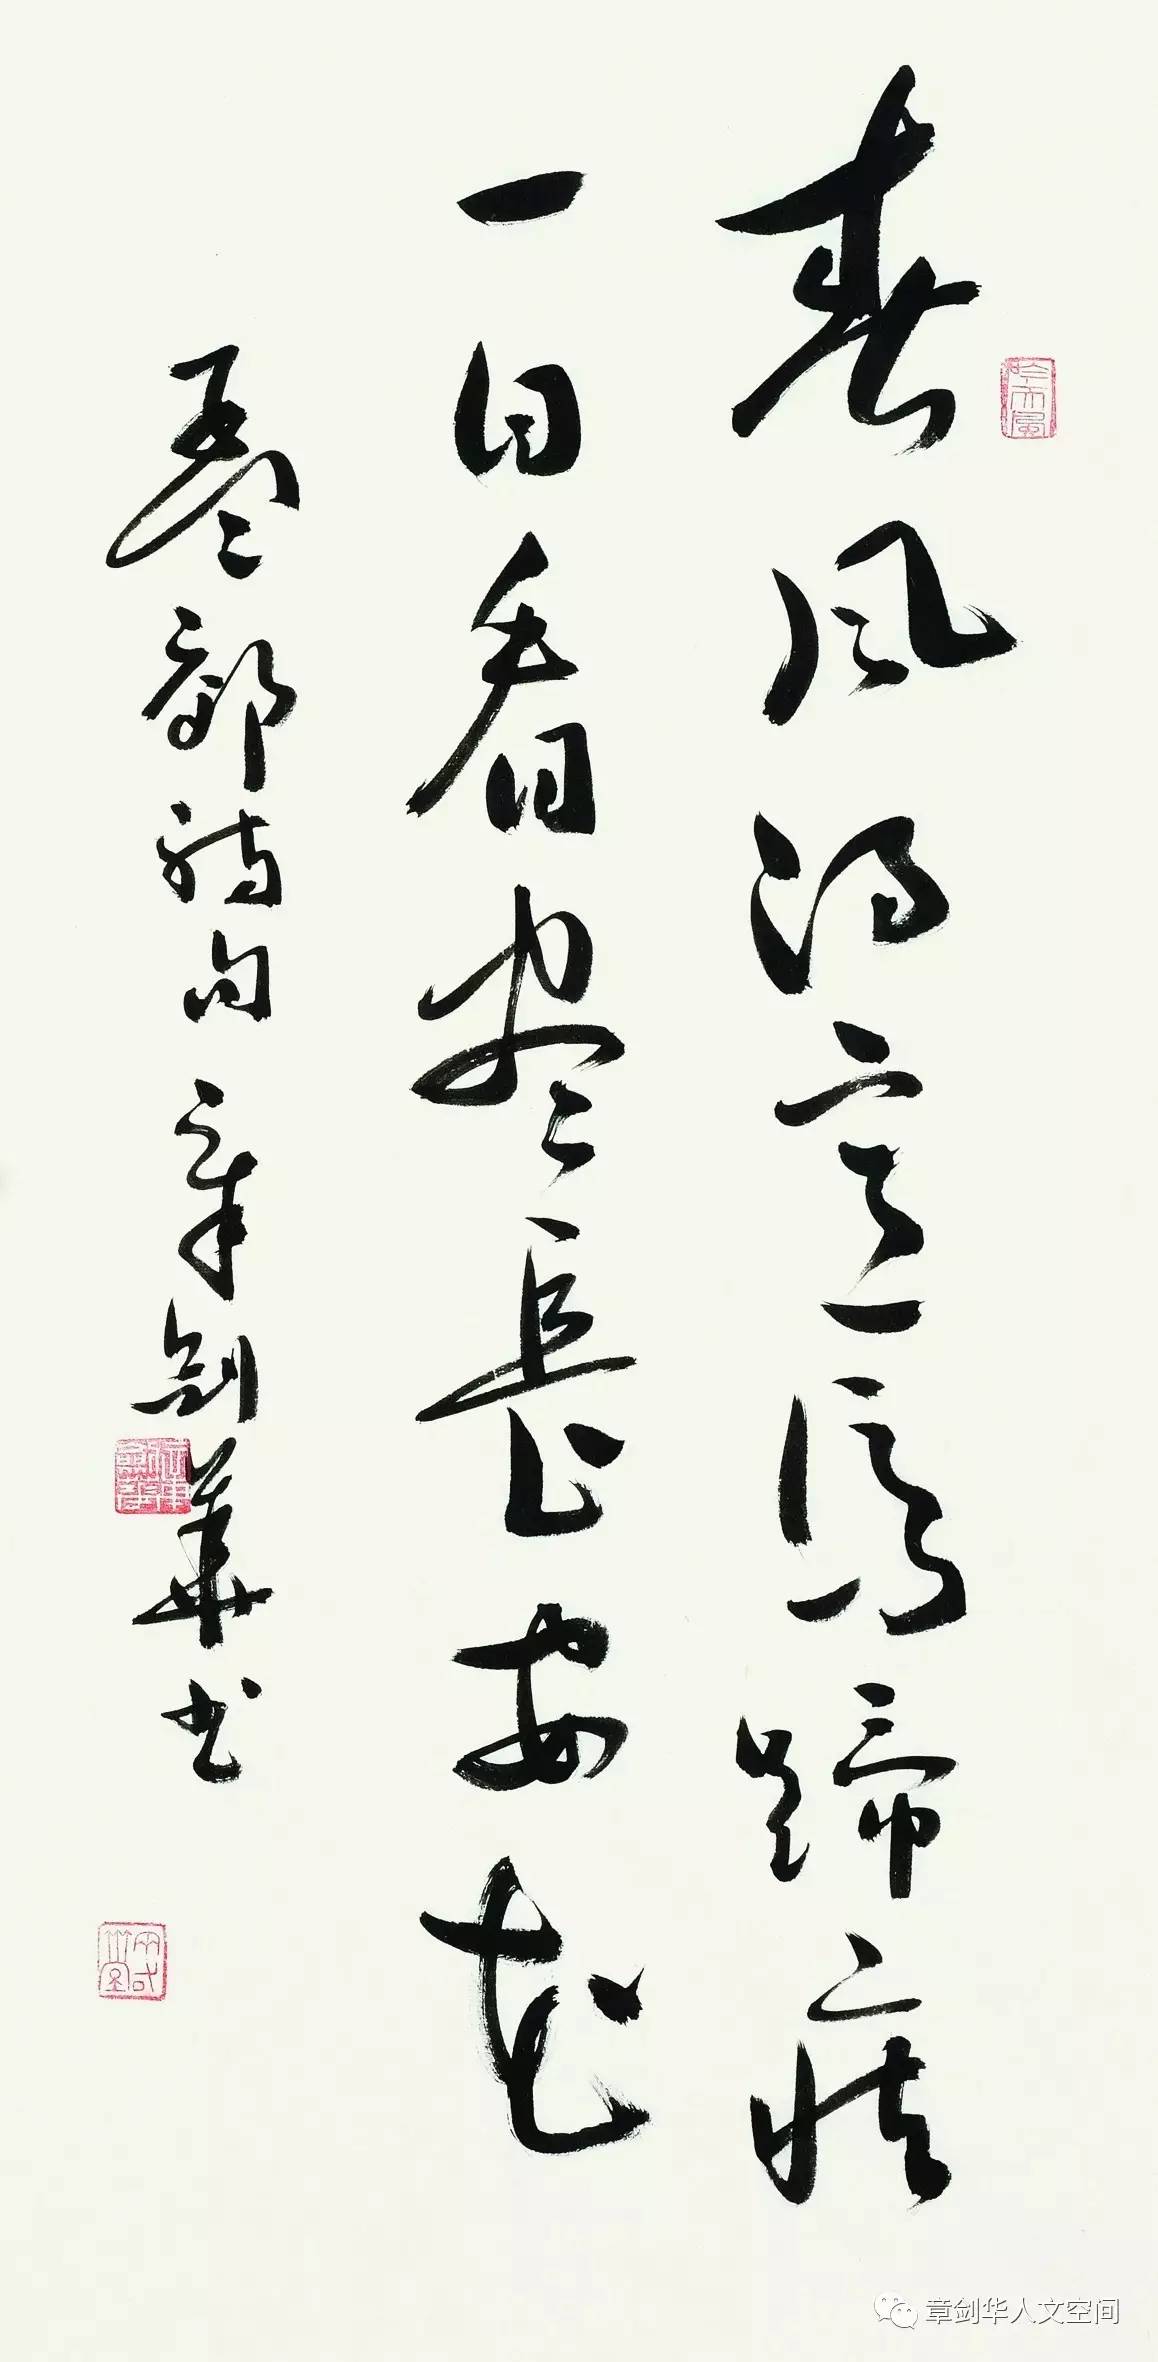 春风得意馬蹄疾
一日看尽長安花
孟郊詩句 章劍華书
章剑华人文空间